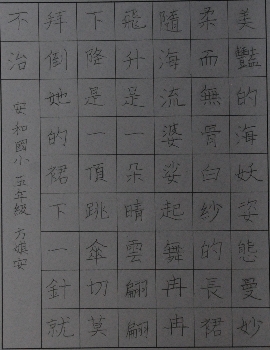 美豔的海妖姿態曼妙
柔而無骨白紗的長裙
隨海流婆娑起舞冉冉
飛升是一朵晴雲翩翩
下降是一頂跳傘一切莫
拜倒她的裙下一針就
不治
安和國小五年級方雄安